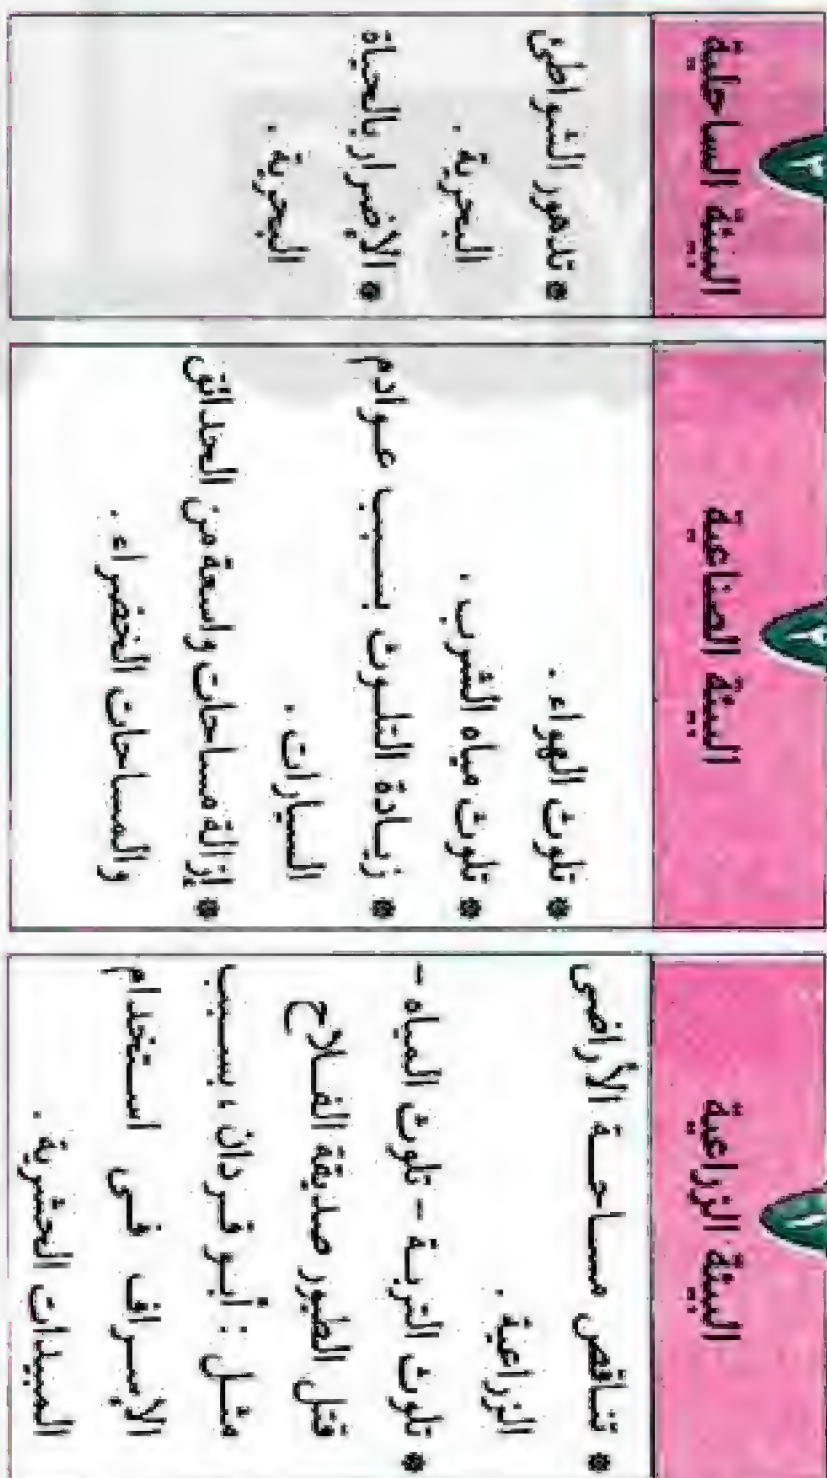 ١
البيئة الزراعية
* تناقص مساحة الأراضى
الزراعية.
* تلوث التربة - تلوث المياه -
قتل الطيور صديقة الفلاح
مثل: أبو قردان، بسبب
الإسراف فى استخدام
المبيدات الحشرية.
٢
البيئة الصناعية
* تلوث الهواء.
* تلوث مياه الشرب.
* زيادة التلوث بسبب عوادم
السيارات.
* إزالة مساحات واسعة من الحدائق
والمساحات الخضراء.
٣
البيئة الساحلية
* تدهور الشواطئ
البحرية.
* الإضرار بالحياة
البحرية.